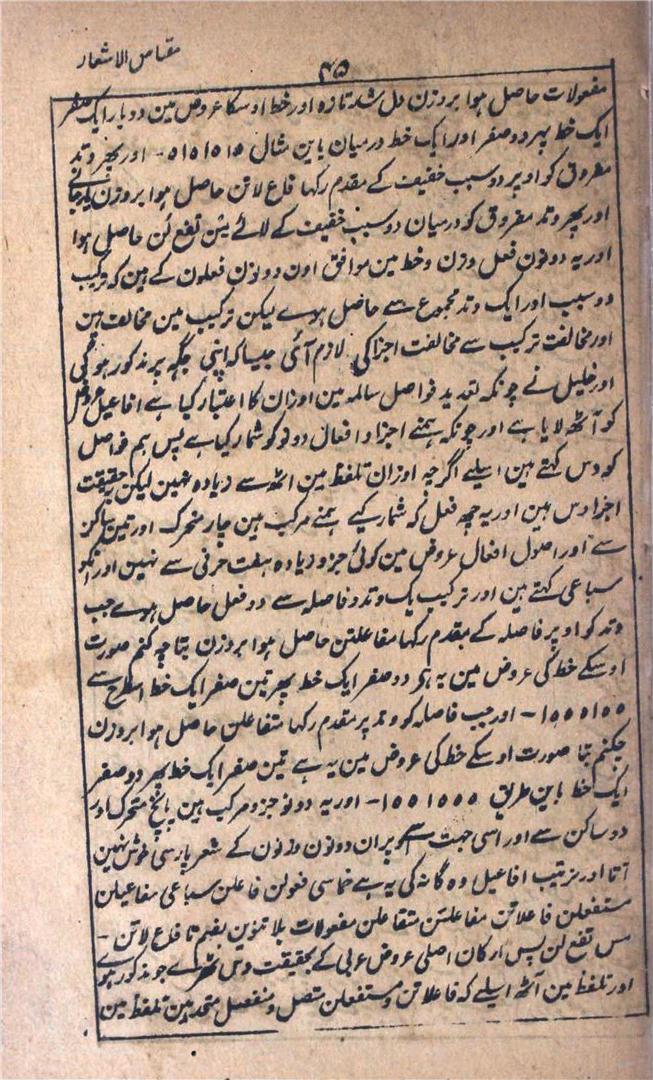 مقیاس الاشعار
۴۵
مفعولات حاصل ہوا بروزن دل شد تازہ اور خط اوسکا عروض مین دوبار ایک صفر
ایک خط پہر دو صفر اور ایک خط درمیان باین مثال ۱۵۱۵۱۵- اور پھر وتد
مفروق کو اوپر دو سبب خفیف کے مقدم رکہا فاع لاتن حاصل ہوا بروزن
اور پھر وتد مفروق کو درمیان دو سبب خفیف کے لائے مس تفع لن حاصل ہوا
اور یہ دونون فعل وزن و خط مین موافق اون دونون فعلون کے ہین کہ ترکیب
دو سبب اور ایک وتد مجموع سے حاصل ہوے لیکن ترکیب مین مخالف ہین
اور مخالفت ترکیب سے مخالفت اجزا کی لازم آئی جیسا کہ اپنی جگہ پر مذکور ہو گی
اور خلیل نے چونکہ تعدید فواصل سالمہ مین اوزان کا اعتبار کیا ہے افاعیل عروض
کو آٹھ لایا ہے اور چونکہ ہمنے اجزا و افعال دونو کو شمار کیا ہے پس ہم فواصل
کو دس کہتے ہین اسیلے اگرچہ اوزان تلفظ مین آٹھ سے زیادہ نہین لیکن بحقیقت
اجزا دس ہین اور یہ چھ فعل کہ شمار کیے ہمنے مرکب ہین چار متحرک اور تین ساکن
سے اور اصول افعال عروض مین کوئی جزو زیادہ ہفت حرفی سے نہین اور انکو
سباعی کہتے ہین اور ترکیب یک وتد و فاصلہ سے دو فعل حاصل ہوے جب
وتد کو اوپر فاصلہ کے مقدم رکہا مفاعلتن حاصل ہوا بروزن بتا چہ کنم صورت
اوسکے خط کی عروض مین یہ ہی دو صفر ایک خط پھر تین صفر ایک خط اسطرح سے
۱۵۵۵۱۵۵- اور جب فاصلہ کو وتد پر مقدم رکہا متفاعلن حاصل ہوا بروزن
چکنم بتا صورت اوسکے خط کی عروض مین یہ ہے تین صفر ایک خط پھر دو صفر
ایک خط باین طریق ۱۵۵۱۵۵۵- اور یہ دونو جزو مرکب ہین پانچ متحرک اور
دو ساکن سے اور اسی جہت سے اوپر ان دونون وزنون کے شعر پارسی خوش نہین
آتا اور ترتیب افاعیل دہ گانہ کی یہ ہے خماسی فعولن فاعلن سباعی مفاعیلن
مستفعلن فاعلاتن مفاعلتن متفاعلن مفعولات بلا تنوین بضم تا فاع لاتن -
مس تفع لن پس ارکان اصلی عروض عربی کے بحقیقت دس ٹھہرے جو مذکور ہوے
اور تلفظ مین آٹھ اسیلے کہ فاعلاتن و مستفعلن متصل و منفصل متحد ہین تلفظ مین